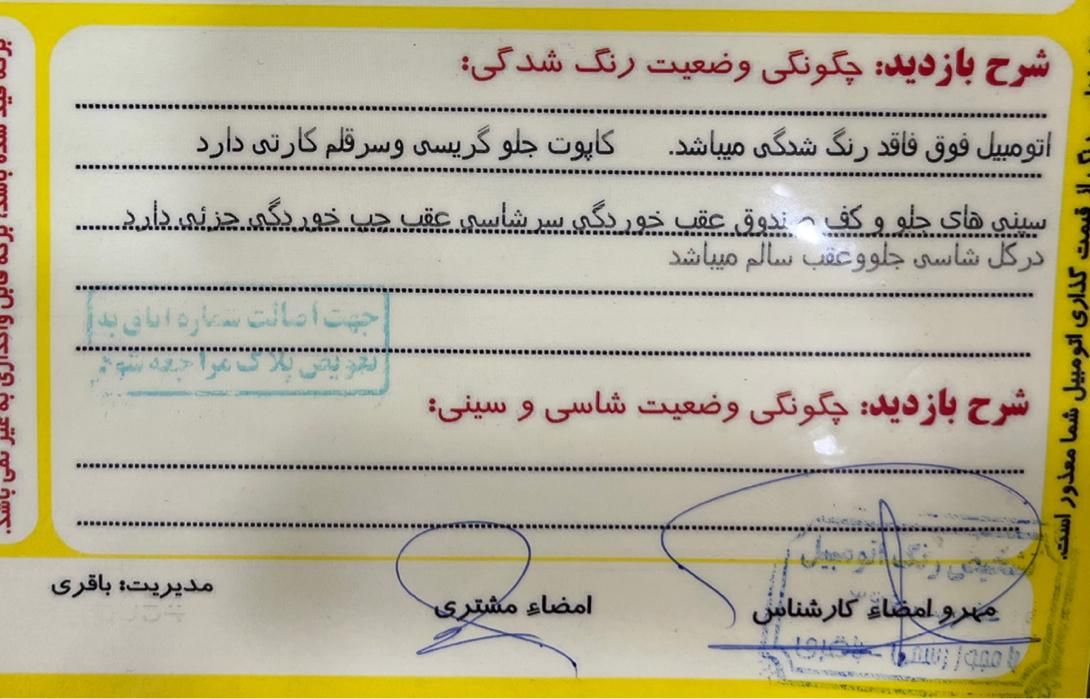 شرح بازدید: چگونگی وضعیت رنگ شدگی:
اتومبیل فوق فاقد رنگ شدگی میباشد. کاپوت جلو گریسی وسرقلم کارتی دارد
سینی های جلو و کف صندوق عقب خوردگی سرشاسی عقب چپ خوردگی جزئی دارد
درکل شاسی جلووعقب سالم میباشد
جهت اصالت شماره اتاق به
تعویض پلاک مراجعه شود
شرح بازدید: چگونگی وضعیت شاسی و سینی:
مهرو امضاءِ کارشناس
امضاءِ مشتری
مدیریت: باقری
تشخیص رنگ اتومبیل
از قیمت گذاری اتومبیل شما معذور است.
برگه قید شده باشد، برگه قابل واگذاری به غیر نمی باشد.